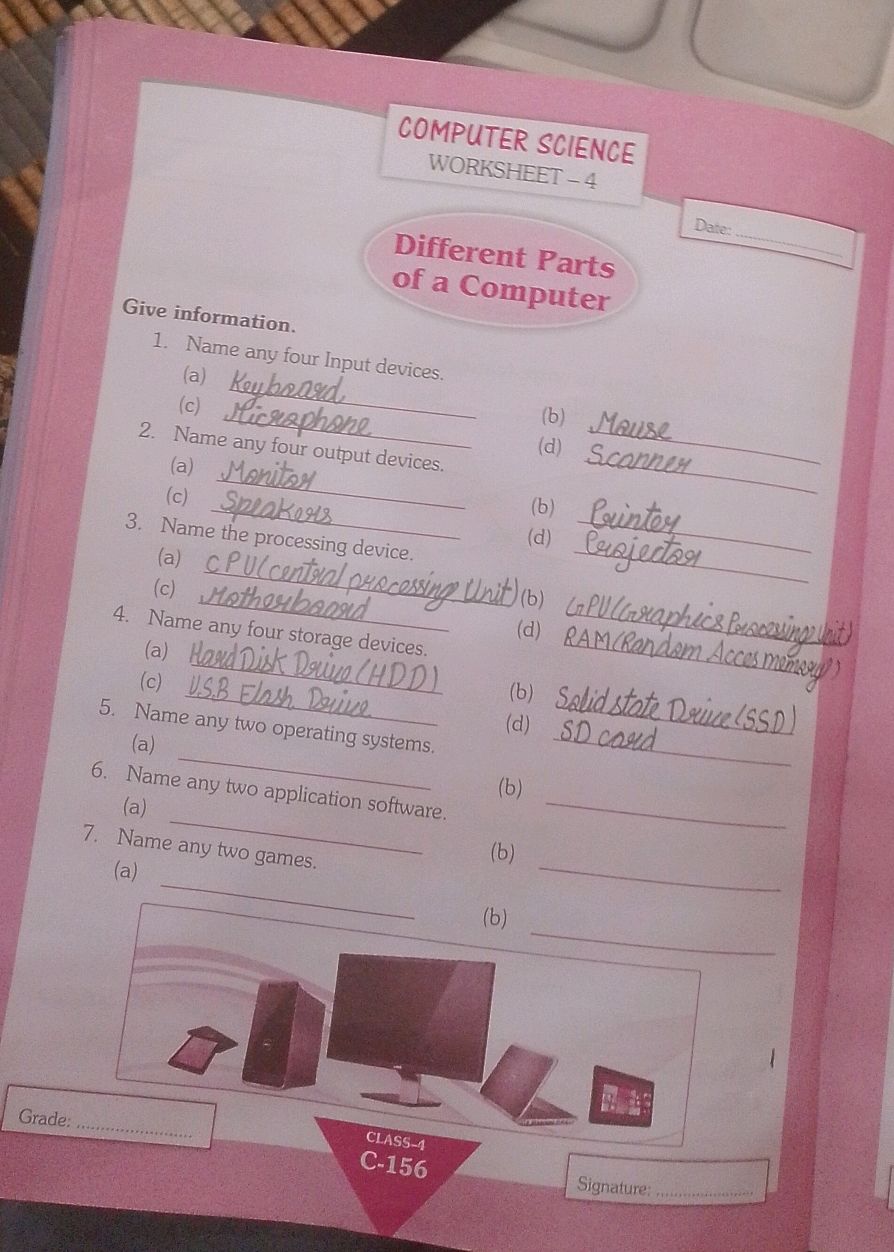 COMPUTER SCIENCE
WORKSHEET – 4
Date:
Different Parts
of a Computer
Give information.
1. Name any four Input devices.
(a) Keyboard (b) Mouse
(c) Microphone (d) Scanner
2. Name any four output devices.
(a) Monitor (b) Printer
(c) Speakers (d) Projector
3. Name the processing device.
(a) CPU(central processing Unit) (b) GPU(Graphics Processing Unit)
(c) Motherboard (d) RAM(Random Acces memory)
4. Name any four storage devices.
(a) Hard Disk Drive(HDD) (b) Solid state Drive(SSD)
(c) U.S.B Flash Drive (d) SD card
5. Name any two operating systems.
(a) (b)
6. Name any two application software.
(a) (b)
7. Name any two games.
(a) (b)
Grade:
CLASS-4
C-156
Signature: